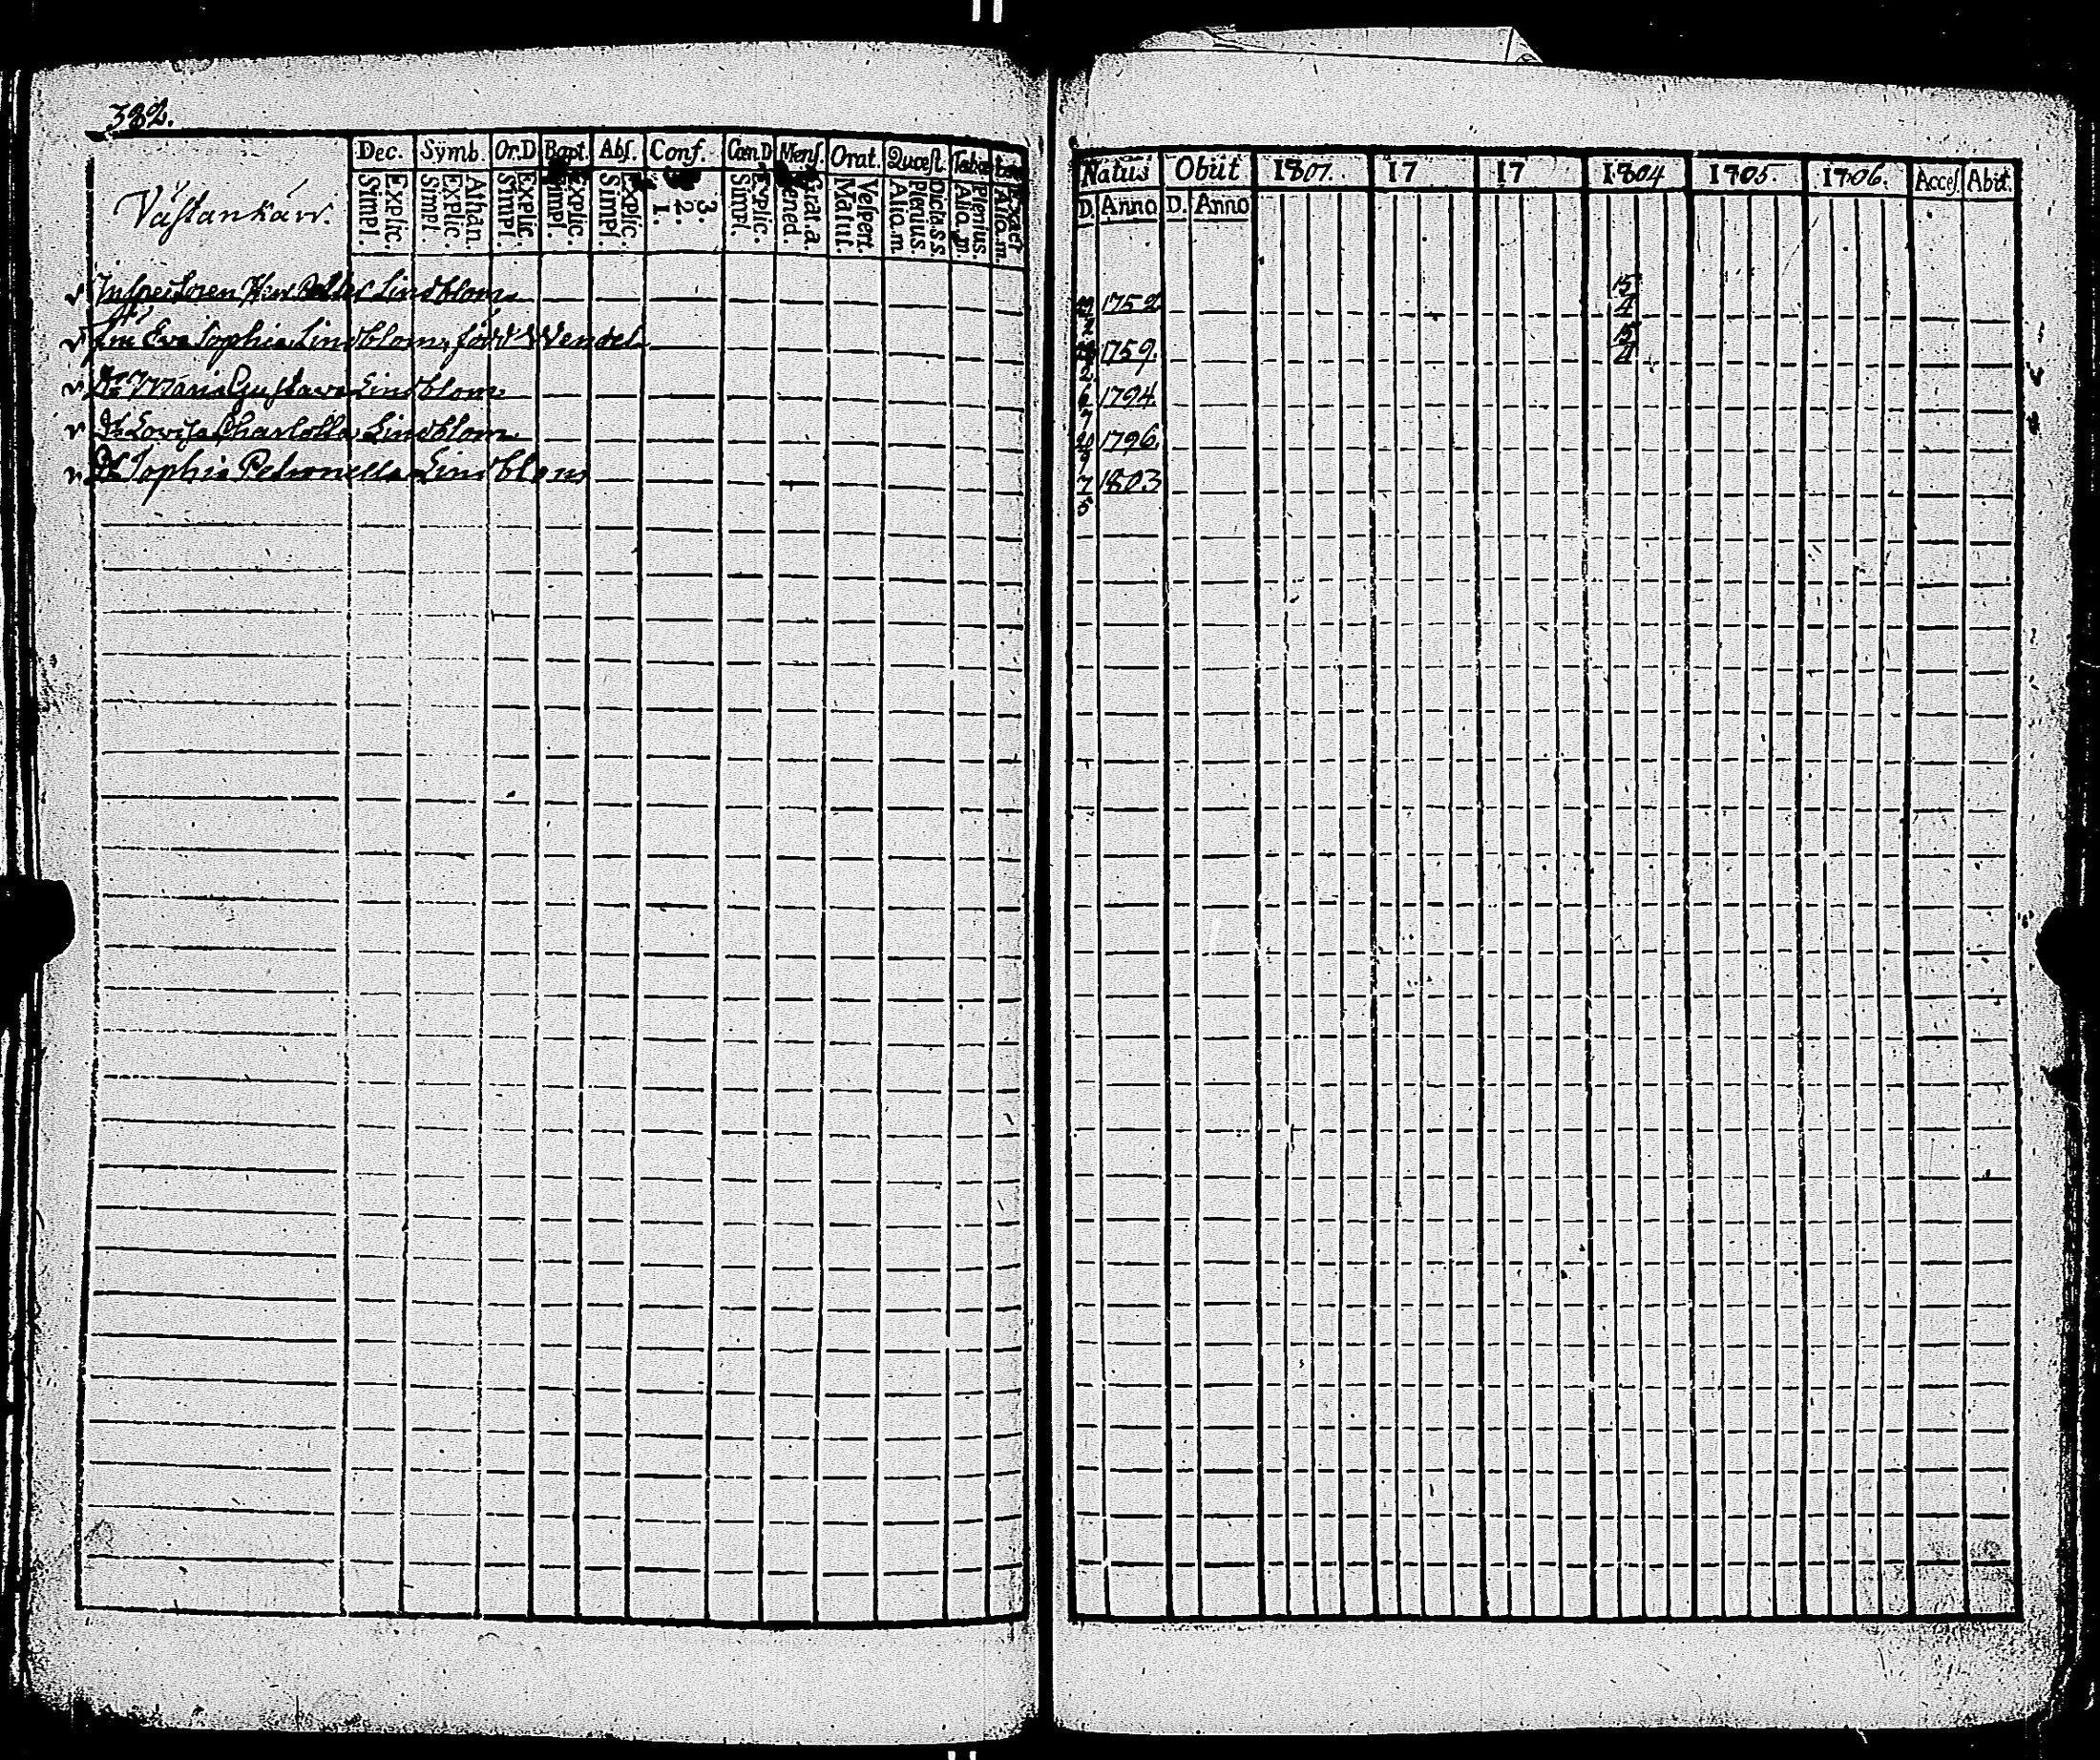 382.
Dec. Symb. Or.D Bapt. Abs. Conf. Cœn.D Mens. Orat. Quæst. Tab.œ
Simpl. Explic. Simpl. Explic. Athan. Simpl. Explic. Simpl. Explic. Simpl. Explic. 1. 2. 3. Simpl. Explic. Bened. Grat. a. Matut. Vespert. Alio. m. Plenius. Dicta. s. s. Alio. m. Plenius. Alio. m. Exact
Västankärr.
Inspectoren Herr Lindblom
Fru Eva Sophia Lindblom, född Wendel
Dr Maria Gustava Lindblom
Dr Lovisa Charlotta Lindblom
Dr Sophia Petronella Lindblom
Natus Obiit 1801. 17 17 1804 1805. 1806. Acces. Abit.
D. Anno D. Anno
1752 15/4
1759. 15/4
6/7 1794
1796.
7/5 1803